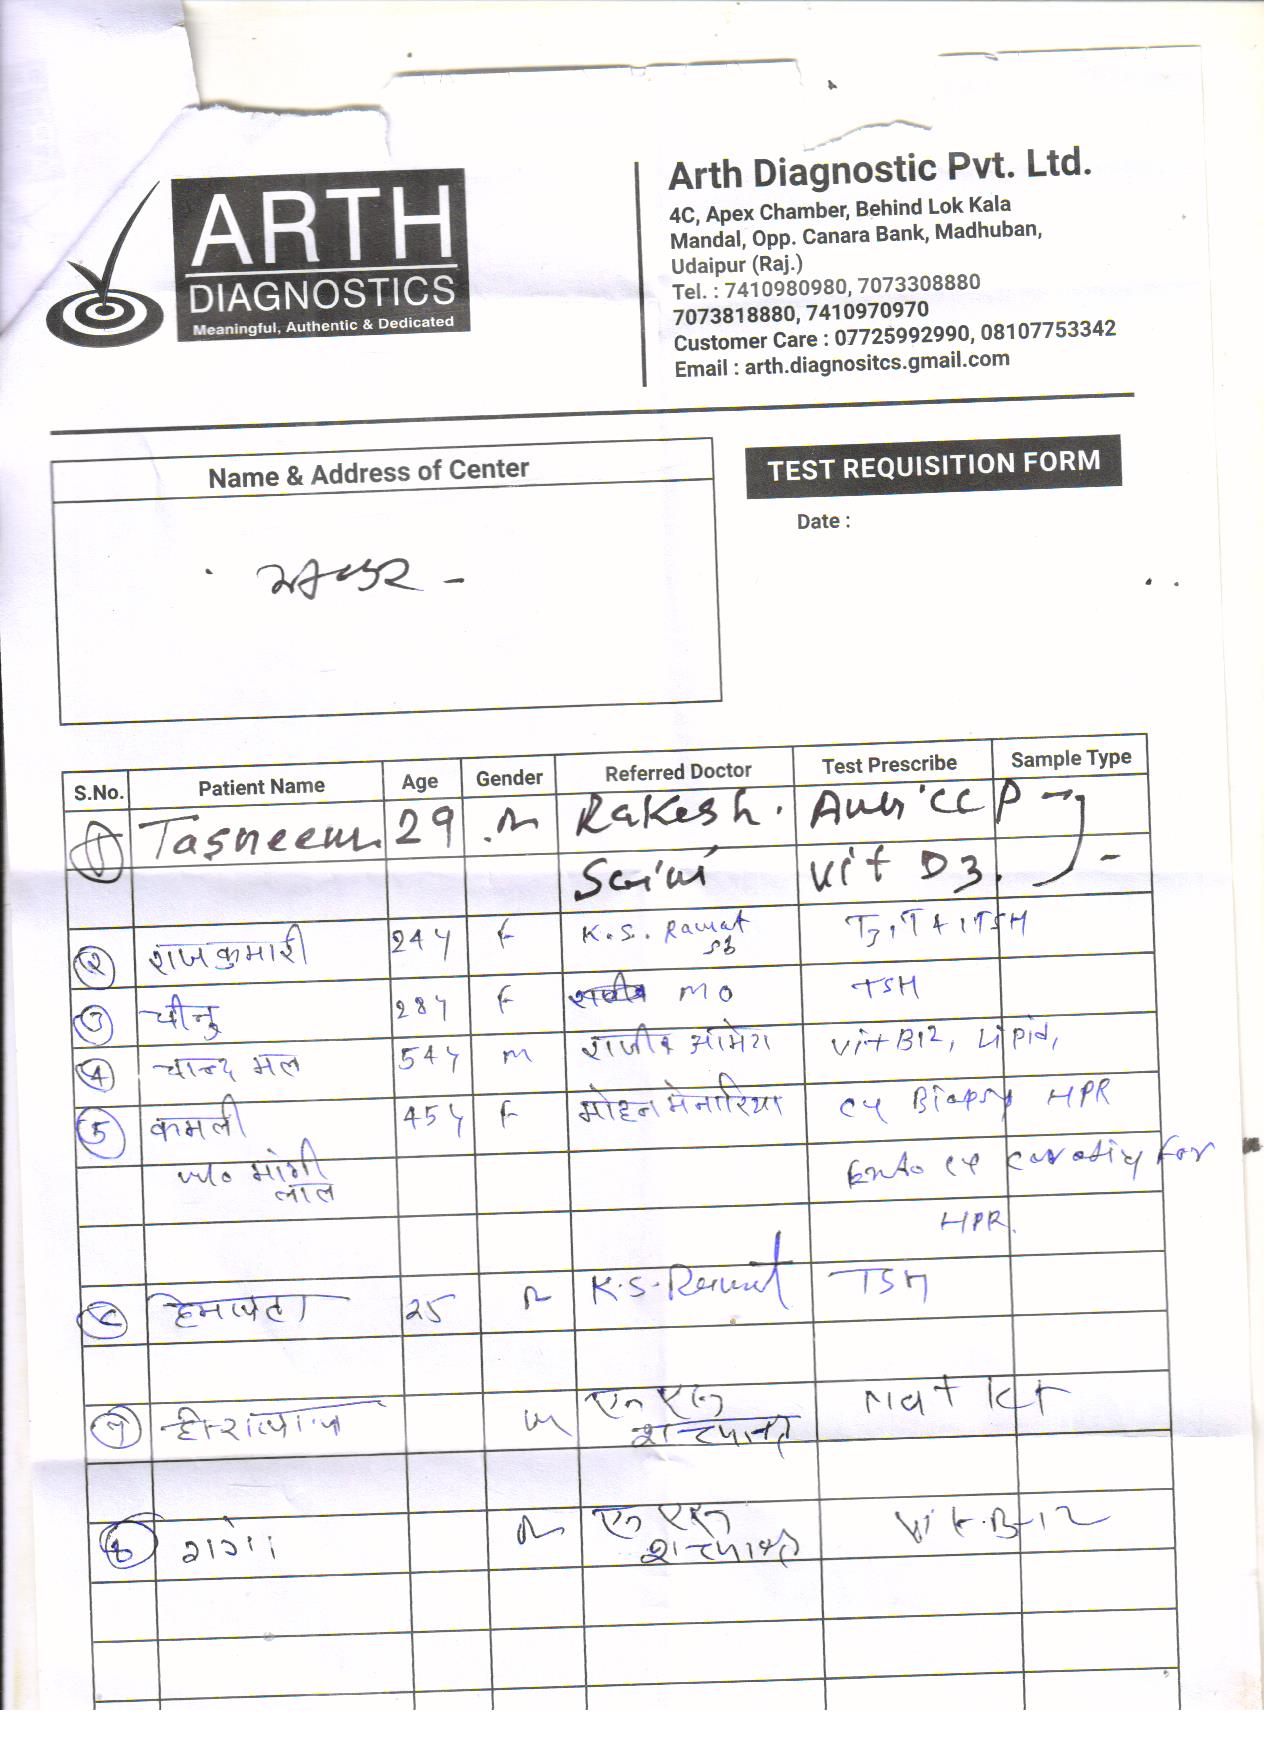 ARTH
DIAGNOSTICS
Meaningful, Authentic & Dedicated
Arth Diagnostic Pvt. Ltd.
4C, Apex Chamber, Behind Lok Kala
Mandal, Opp. Canara Bank, Madhuban,
Udaipur (Raj.)
Tel. : 7410980980, 7073308880
7073818880, 7410970970
Customer Care : 07725992990, 08107753342
Email : arth.diagnositcs.gmail.com
Name & Address of Center
TEST REQUISITION FORM
Date :
S.No. Patient Name Age Gender Referred Doctor Test Prescribe Sample Type
1 Tasneem. 29 Rakesh. Anti CCP
Saini Vit D3.
२ राजकुमारी 24y F K.S. Rawat T3, T4, TSH
3 चीनु 28y F MO TSH
4 चान्द मल 54y m राजीव आमेटा Vit B12, Lipid,
5 कमली 45y F मोहन मेनारिया Cy Biopsy HPR
w/o मांगी लाल Endo for
HPR.
25 K.S. Rawat TSH
हीरालाल m
Vit. B-12